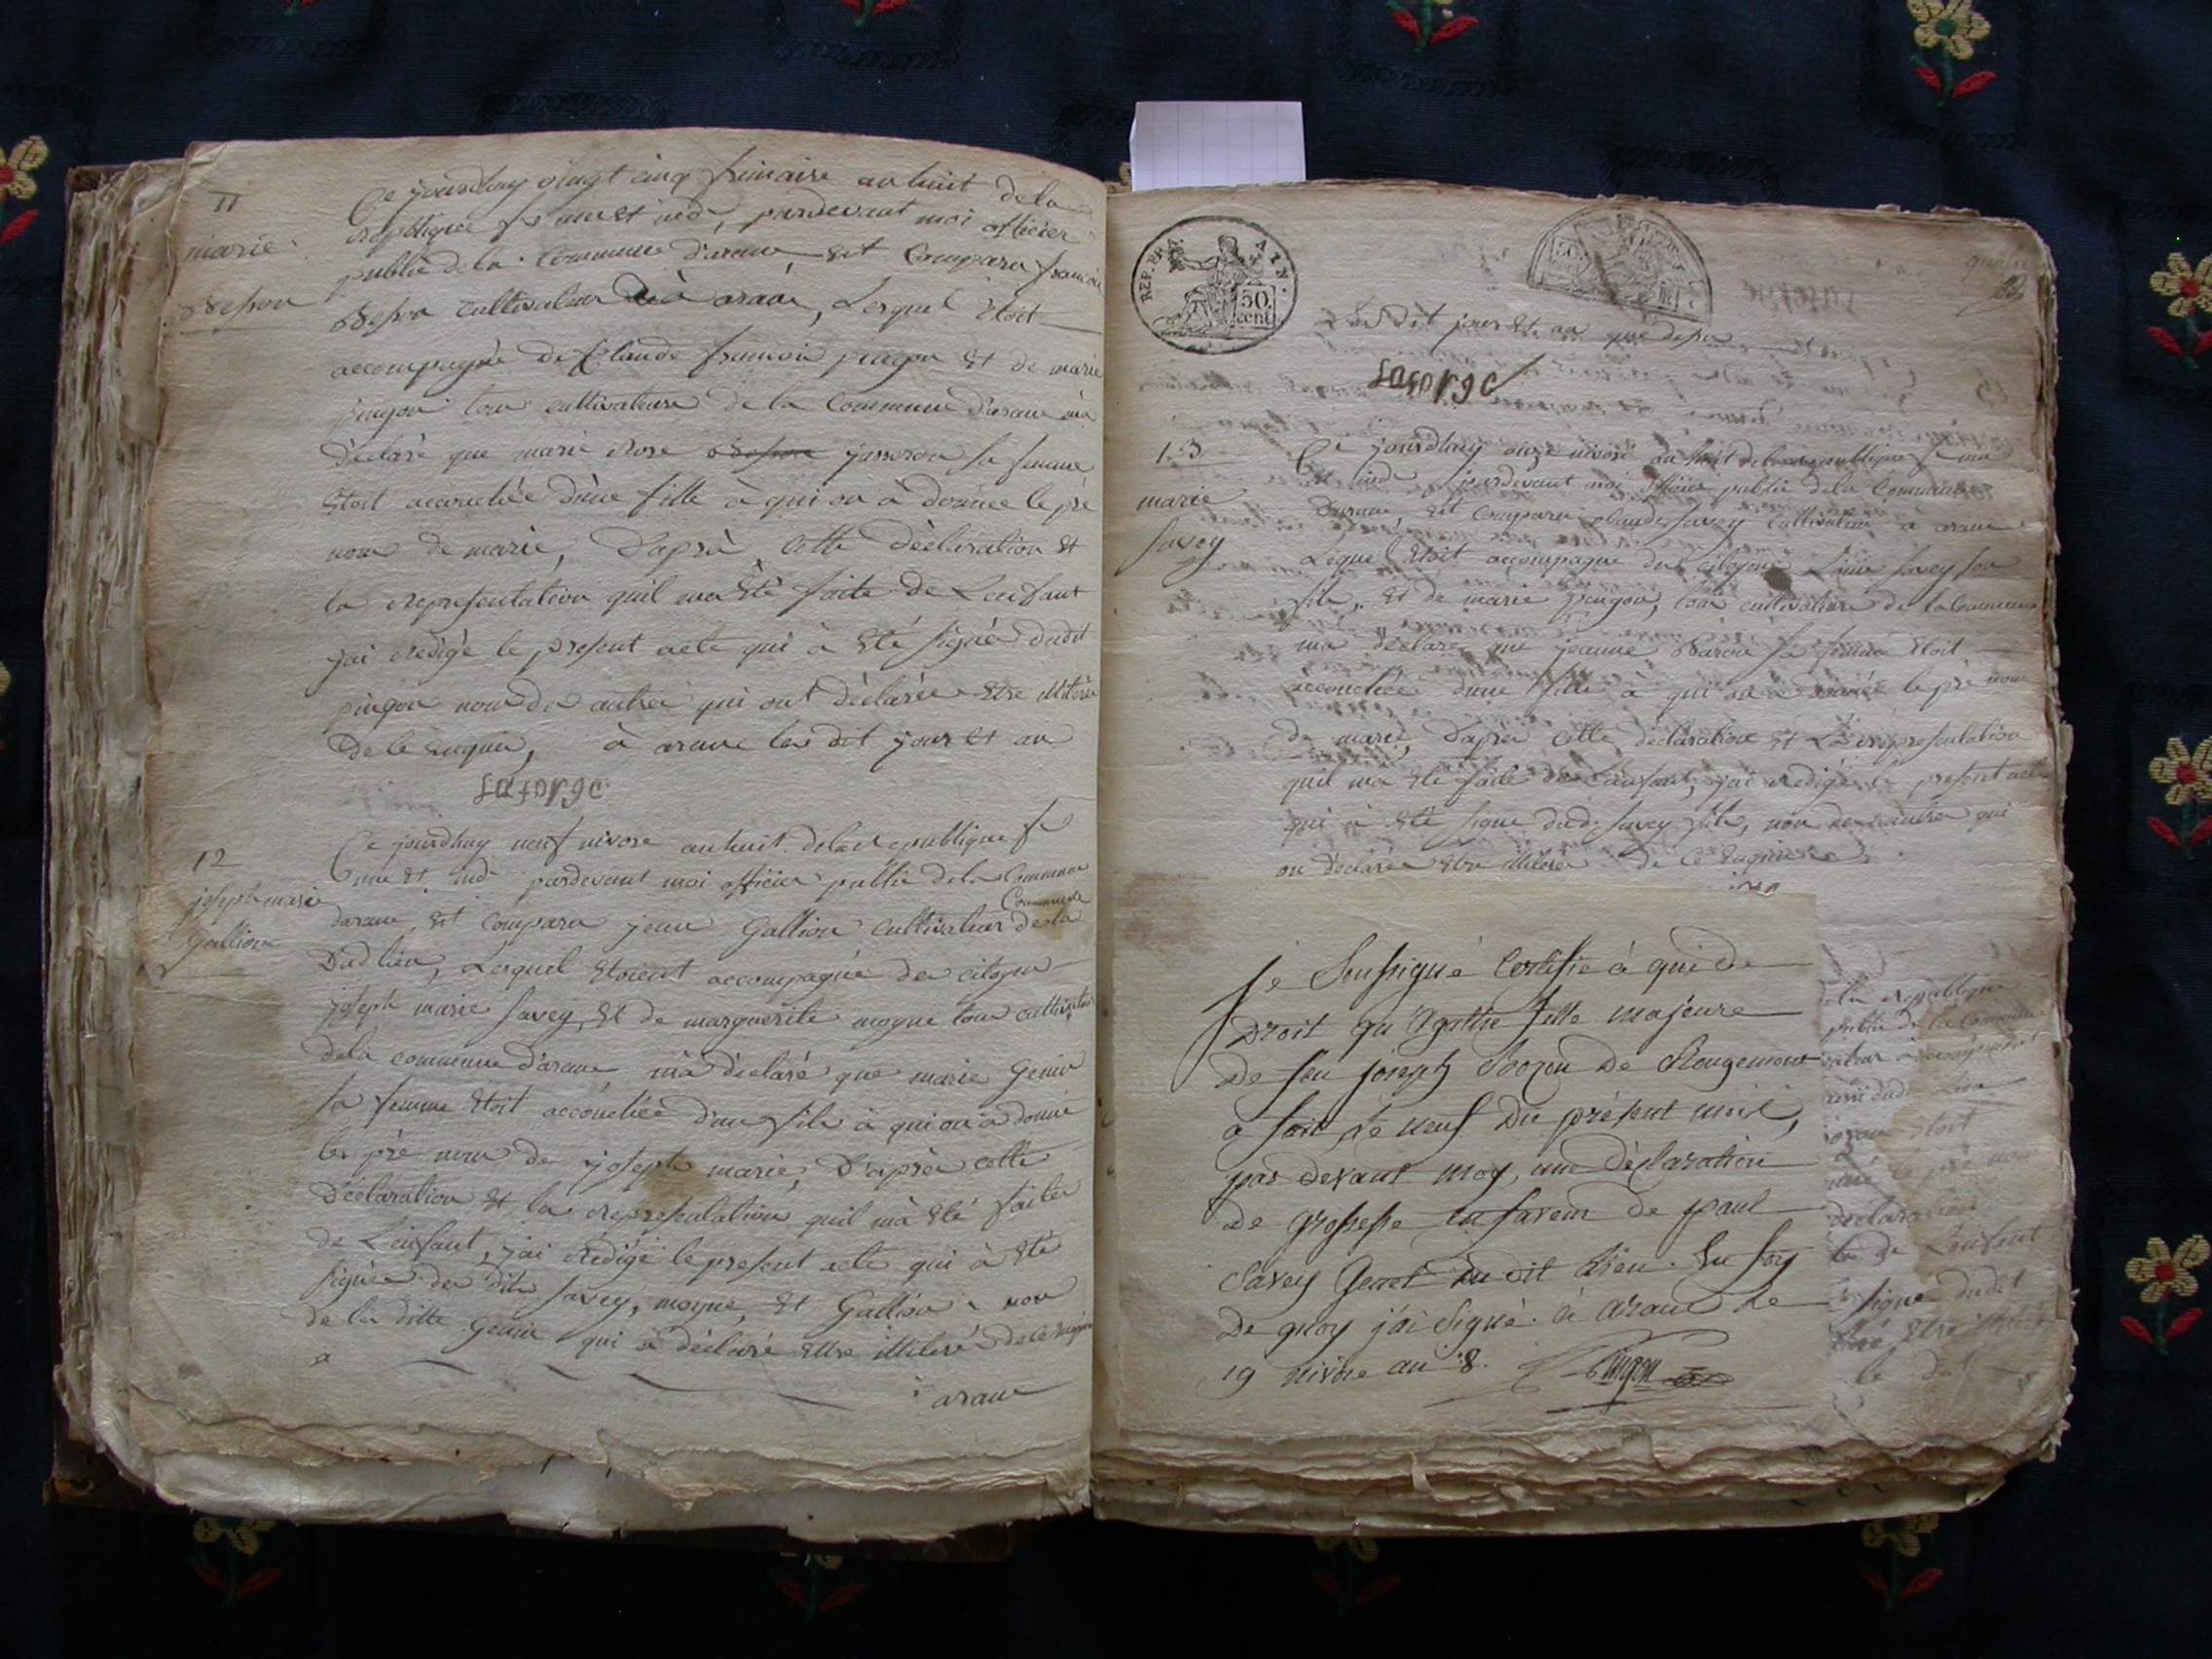 11
marie
Besson
Ce jourdhuy vingt cinq frimaire an huit de la
republique fse une et ind, pardevant moi officier
public de la Commune d'arane est Comparu françois
Besson cultivateur à arane, Lesquel Etoit
accompagné de Claude françois pingon Et de marie
pingon tous cultivateurs de la Commune d'arane ma
Déclaré que marie Rose jasseron sa femme
Etoit accouchée d'une fille à qui on à donnée le pré
nom de marie, D'après Cette Déclaration Et
la representation quil ma Eté faite De Lenfant
jai redigé le present acte qui à Eté signée dudit
pingon non des autres qui ont déclarée Etre illiteré
De le enquis, à arane les dit jour Et an
Laforge
12
joseph marie
Gallion
Ce jourdhuy neuf nivose an huit de la republique fse
une Et ind pardevant moi officier public dela Commune
darane, Est Comparu jean Gallion Cultivateur de la
Commune
Dud lieu, Lesquel Etoient accompagné des citoyen
joseph marie Savey, Et de marguerite moyne tous cultivateurs
dela commune d'arane mà déclaré que marie Genin
sa femme Etoit accouchée d'un fils à qui on à donné
les pré nom de joseph marie, D'après cette
Déclaration Et la representation quil mà Eté faites
de Lenfant, jai rédigé le present acte qui à Eté
signée des dits Savey, moyne, Et Gallion non
de la ditte Genin qui à déclaré Etre illiteré de le enquis
a arane
REP. FRA. AIN.
50. cent.
50
Les dit jour Et an que dessus
Laforge
13
marie
Savey
Ce jourdhuy onze nivose an huit de la republique fse une
Et ind pardevant moi officier public dela Commune
Darane, Est Comparu claude Savey Cultivateur à arane
Lequel Etoit accompagné du Citoyen Savey son
fils, Et de marie pingon, tous cultivateurs de la Commune
ma déclaré que jeanne sa femme Etoit
accouchée d'une fille à qui on a donnée le pré nom
de marie, D'après Cette déclaration Et La representation
quil ma Eté faite de Lenfant, jai redigé le present acte
qui à Eté signé dud. Savey fils, non des autres qui
on déclaré Etre illiteré de Ce Enquis
je Soussigné Certifie à qui de
Droit qu'Agathe fille majeure
De feu joseph de Rougemont
a fait le neuf du présent mois,
par devant moy, une déclaration
de grossesse en faveur de paul
Savey du dit lieu. En foy
De quoy j'ai signé. à arane le
19 nivose an 8. Pingon
de la republique
public de la Commune
Etoit
le pré nom
declaration
de Lenfant
signé dudit
le dit